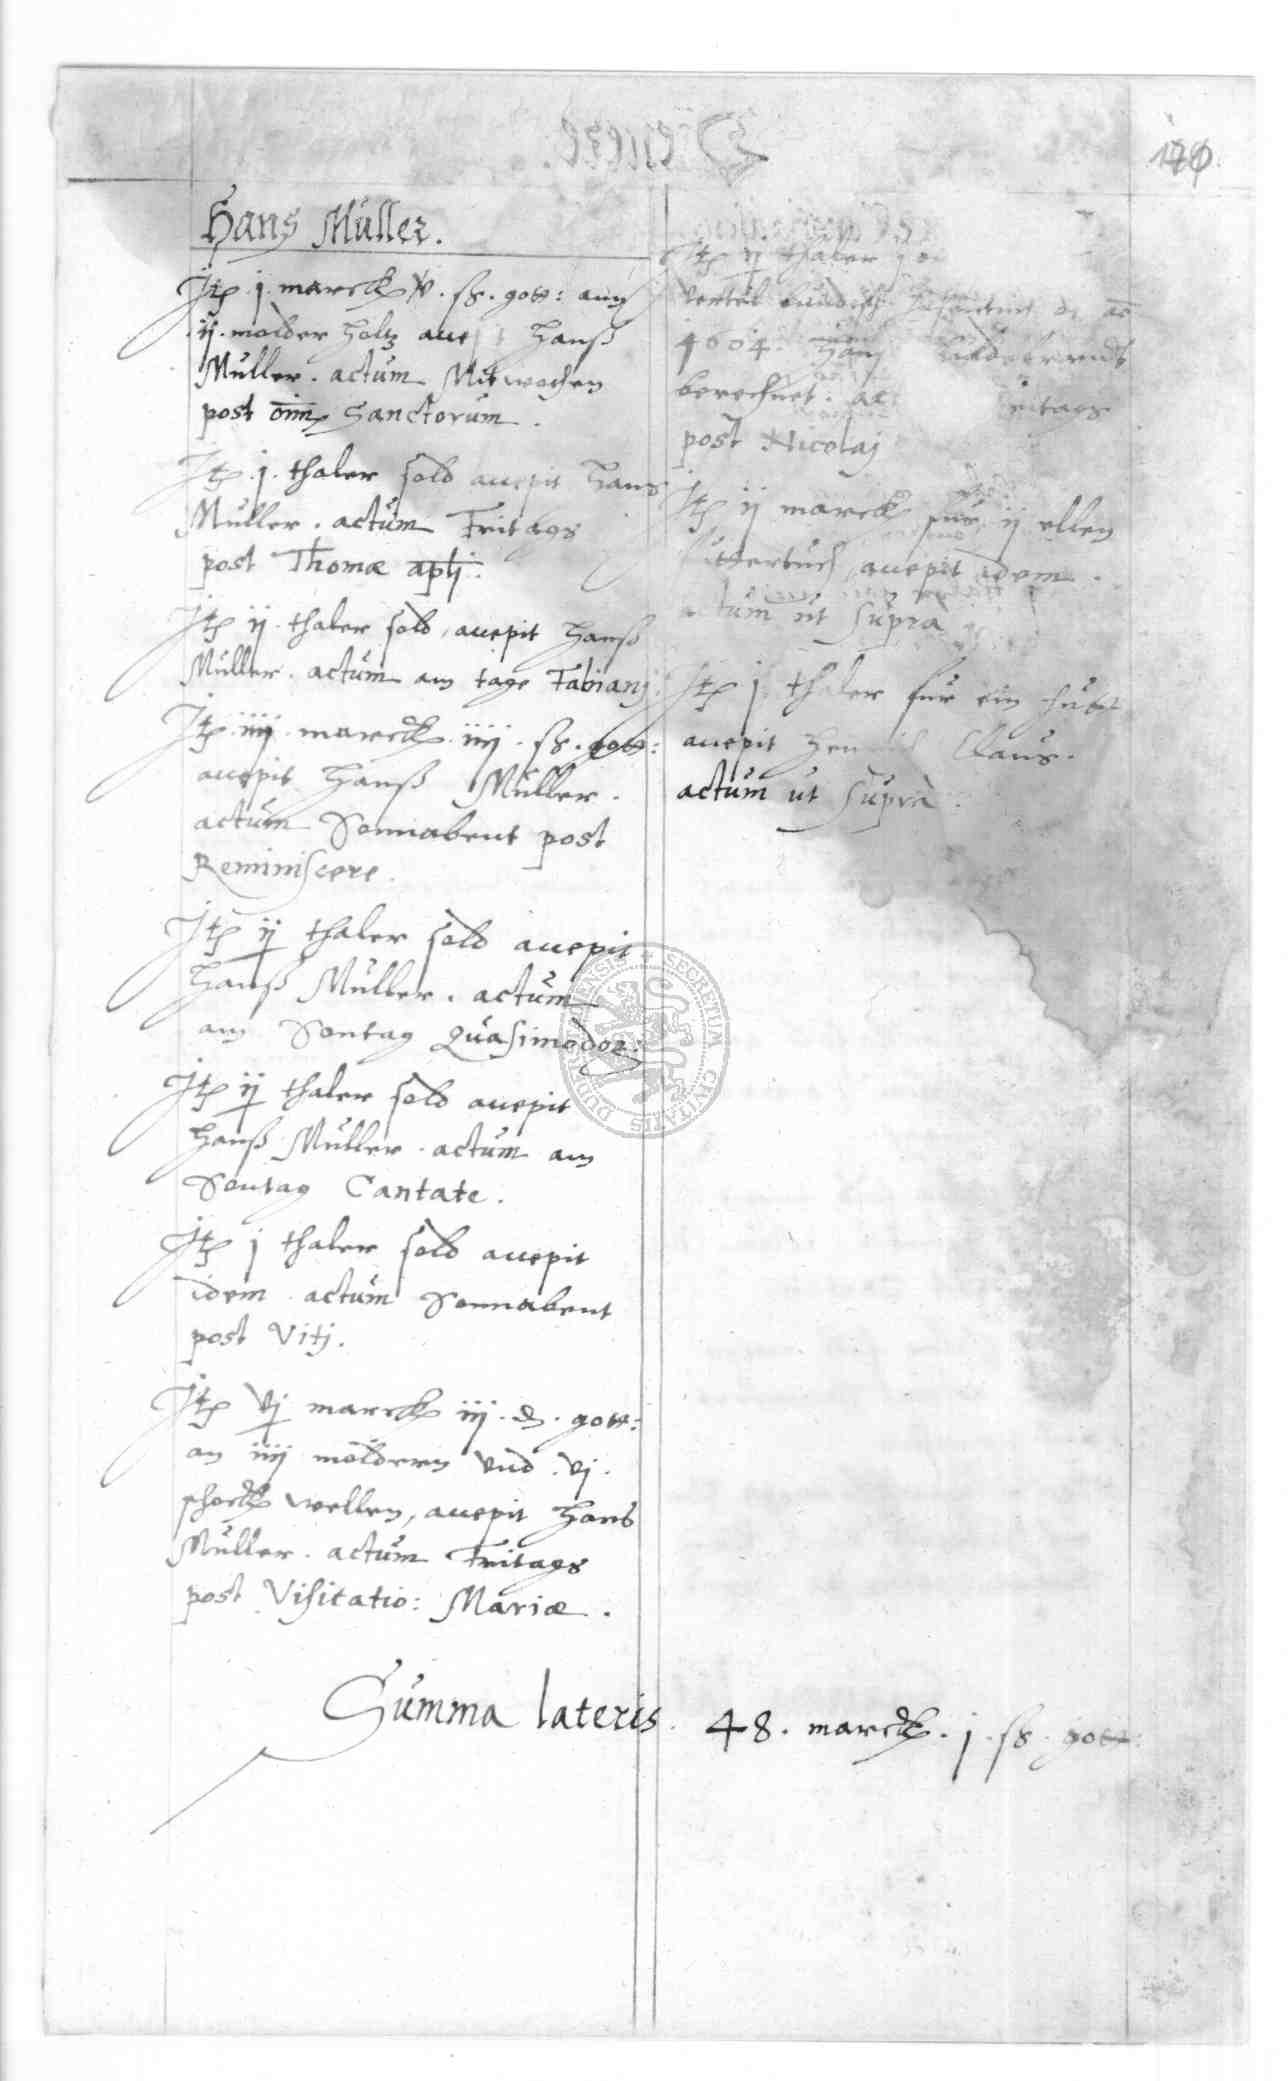 170.
Hans Müller.
Jtē .j. marck v. ß. gott: ann
.ij. molder holtz accepit Hanß
Müller. actum Mitwochen
post oīm Sanctorum.
Jtē .j. thaler sold accepit Hans
Müller. actum Fritags
post Thomæ aplj.
Jtē ij. thaler sold, accepit Hanß
Müller. actum am tage Fabianj
Jtē iiij. marck. iiij. ß. gott:
accepit Hanß Müller.
actum Sonnabent post
Reminiscere.
Jtē ij thaler sold accepit
Hanß Müller. actum
am Sontag Quasimodog:
Jtē ij thaler sold accepit
Hanß Müller. actum am
Sontag Cantate.
Jtē j thaler sold accepit
idem. actum Sonnabent
post Vitj.
Jtē vj marck iij. d. gott:
an iiij möldern vnd .vj.
schock wellen, accepit Hans
Müller. actum Fritags
post Visitatio: Mariæ.
Jtē ij thaler
vertel
1604. Hans
berechnet.
post Nicolaj
Jtē ij marck für ij ellen
futtertuch, accepit idem.
actum ut supra
Jtē j thaler für ein
accepit Claus.
actum ut supra.
Summa lateris. 48. marck. j. ß. gott:
SECRETUM CIVITATIS DUDERSTADENSIS